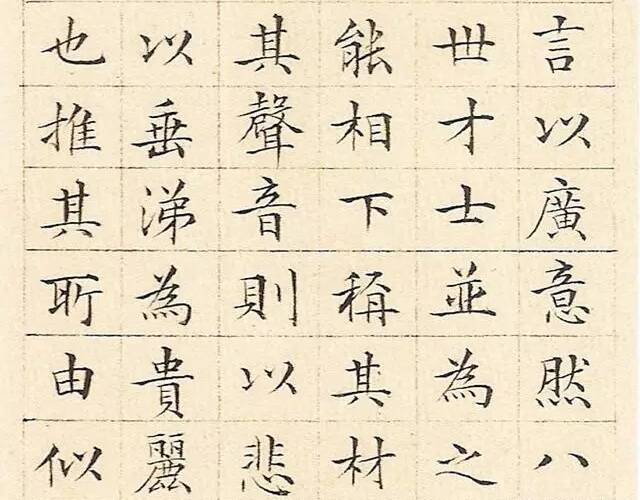 言以廣意然八
世才士並為之
能相下稱其材
其聲音則以悲
以垂涕為貴麗
也推其所由似